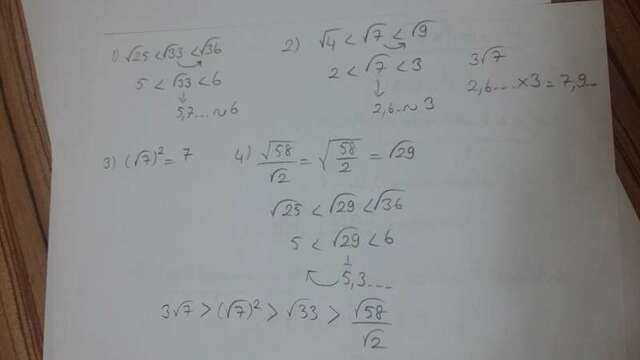 1) √25 < √33 < √36
5 < √33 < 6
↓
5,7... ~ 6
2) √4 < √7 < √9
2 < √7 < 3
↓
2,6... ~ 3
3√7
2,6... × 3 = 7,9...
3) (√7)² = 7
4) √58/√2 = √(58/2) = √29
√25 < √29 < √36
5 < √29 < 6
↓
5,3...
3√7 > (√7)² > √33 > √58/√2